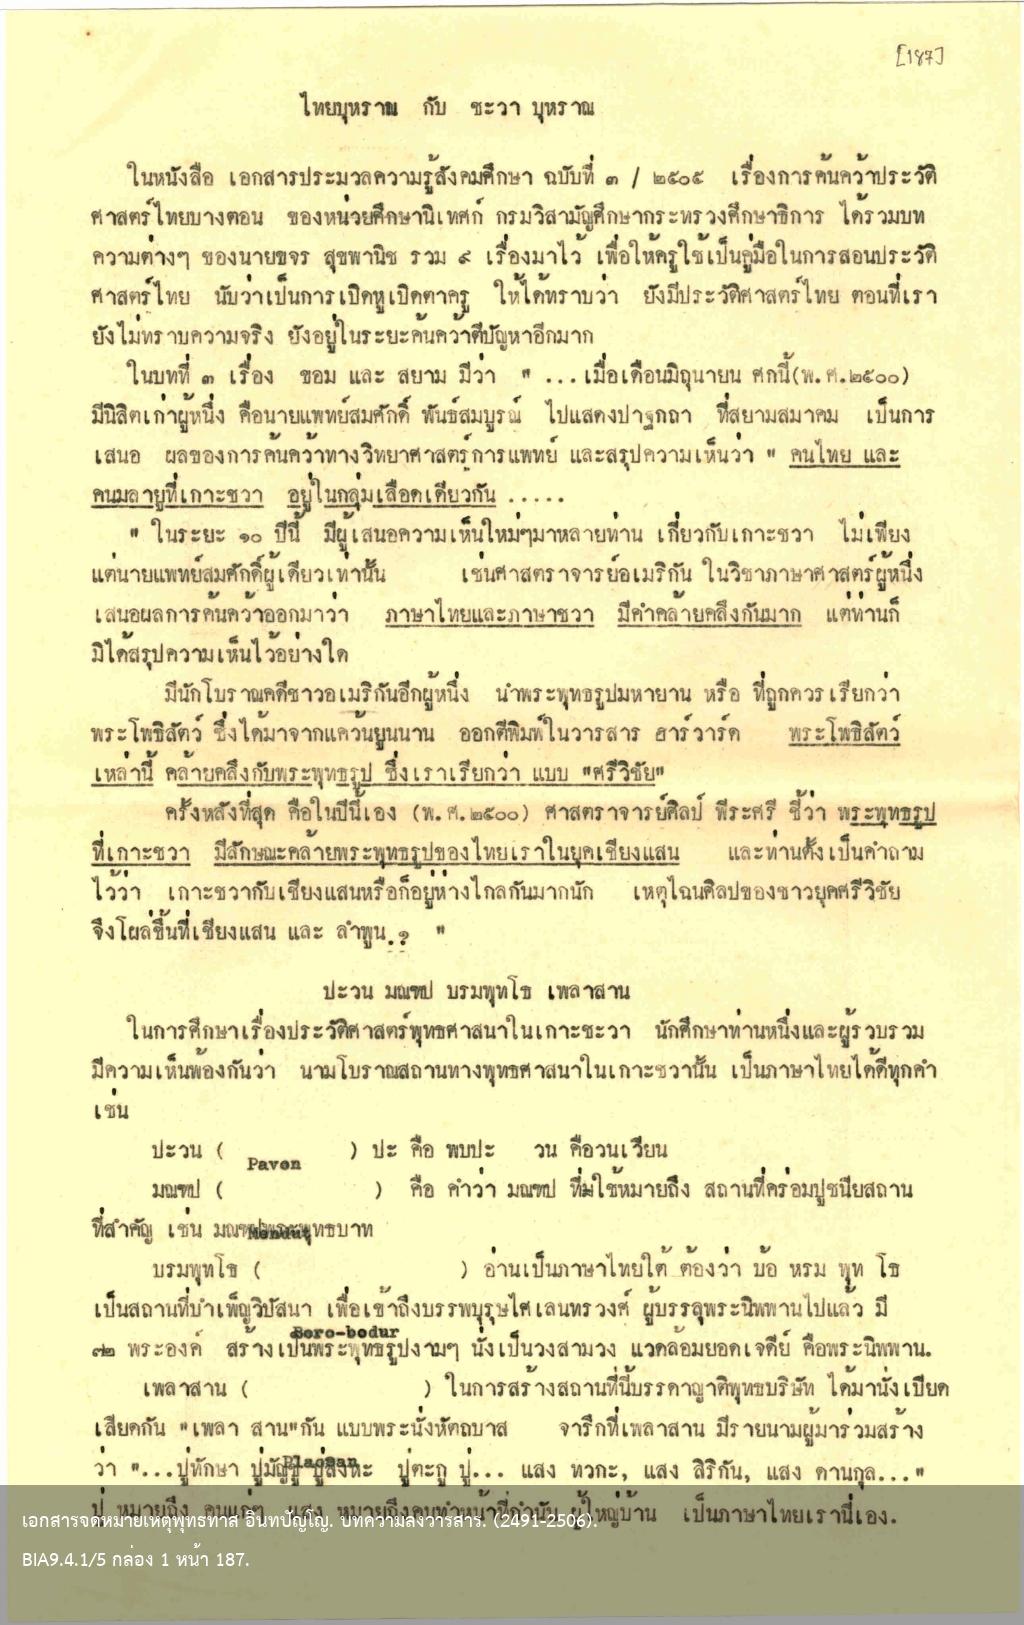 [187]
ไทยบุหราณ กับ ชะวา บุหราณ
ในหนังสือ เอกสารประมวลความรู้สังคมศึกษา ฉบับที่ ๓ / ๒๕๐๕ เรื่องการค้นคว้าประวัติ
ศาสตร์ไทยบางตอน ของหน่วยศึกษานิเทศก์ กรมวิสามัญศึกษากระทรวงศึกษาธิการ ได้รวมบท
ความต่างๆ ของนายขจร สุขพานิช รวม ๙ เรื่องมาไว้ เพื่อให้ครูใช้เป็นคู่มือในการสอนประวัติ
ศาสตร์ไทย นับว่าเป็นการเปิดหูเปิดตาครู ให้ได้ทราบว่า ยังมีประวัติศาสตร์ไทย ตอนที่เรา
ยังไม่ทราบความจริง ยังอยู่ในระยะค้นคว้าตีปัญหาอีกมาก
ในบทที่ ๓ เรื่อง ขอม และ สยาม มีว่า " ...เมื่อเดือนมิถุนายน ศกนี้(พ.ศ.๒๕๐๐)
มีนิสิตเก่าผู้หนึ่ง คือนายแพทย์สมศักดิ์ พันธ์สมบูรณ์ ไปแสดงปาฐกถา ที่สยามสมาคม เป็นการ
เสนอ ผลของการค้นคว้าทางวิทยาศาสตร์การแพทย์ และสรุปความเห็นว่า " คนไทย และ
คนมลายูที่เกาะชวา อยู่ในกลุ่มเลือดเดียวกัน .....
" ในระยะ ๑๐ ปีนี้ มีผู้เสนอความเห็นใหม่ๆมาหลายท่าน เกี่ยวกับเกาะชวา ไม่เพียง
แต่นายแพทย์สมศักดิ์ผู้เดียวเท่านั้น เช่นศาสตราจารย์อเมริกัน ในวิชาภาษาศาสตร์ผู้หนึ่ง
เสนอผลการค้นคว้าออกมาว่า ภาษาไทยและภาษาชวา มีคำคล้ายคลึงกันมาก แต่ท่านก็
มิได้สรุปความเห็นไว้อย่างใด
มีนักโบราณคดีชาวอเมริกันอีกผู้หนึ่ง นำพระพุทธรูปมหายาน หรือ ที่ถูกควรเรียกว่า
พระโพธิสัตว์ ซึ่งได้มาจากแคว้นยูนนาน ออกตีพิมพ์ในวารสาร ฮาร์วาร์ด พระโพธิสัตว์
เหล่านี้ คล้ายคลึงกับพระพุทธรูป ซึ่งเราเรียกว่า แบบ "ศรีวิชัย"
ครั้งหลังที่สุด คือในปีนี้เอง (พ.ศ.๒๕๐๐) ศาสตราจารย์ศิลป์ พีระศรี ชี้ว่า พระพุทธรูป
ที่เกาะชวา มีลักษณะคล้ายพระพุทธรูปของไทยเราในยุคเชียงแสน และท่านตั้งเป็นคำถาม
ไว้ว่า เกาะชวากับเชียงแสนหรือก็อยู่ห่างไกลกันมากนัก เหตุไฉนศิลปของชาวยุคศรีวิชัย
จึงโผล่ขึ้นที่เชียงแสน และ ลำพูน.? "
ปะวน มณฑป บรมพุทโธ เพลาสาน
ในการศึกษาเรื่องประวัติศาสตร์พุทธศาสนาในเกาะชะวา นักศึกษาท่านหนึ่งและผู้รวบรวม
มีความเห็นพ้องกันว่า นามโบราณสถานทางพุทธศาสนาในเกาะชวานั้น เป็นภาษาไทยได้ดีทุกคำ
เช่น
ปะวน ( Pavon ) ปะ คือ พบปะ วน คือวนเวียน
มณฑป ( Mendut ) คือ คำว่า มณฑป ที่ใช้หมายถึง สถานที่คร่อมปูชนียสถาน
ที่สำคัญ เช่น มณฑปพระพุทธบาท
บรมพุทโธ ( Boro-bodur ) อ่านเป็นภาษาไทยใต้ ต้องว่า บ้อ หรม พุท โธ
เป็นสถานที่บำเพ็ญวิปัสนา เพื่อเข้าถึงบรรพบุรุษไศเลนทรวงศ์ ผู้บรรลุพระนิพพานไปแล้ว มี
๗๒ พระองค์ สร้างเป็นพระพุทธรูปงามๆ นั่งเป็นวงสามวง แวดล้อมยอดเจดีย์ คือพระนิพพาน.
เพลาสาน ( Plaosan ) ในการสร้างสถานที่นี้บรรดาญาติพุทธบริษัท ได้มานั่งเบียด
เสียดกัน "เพลา สาน"กัน แบบพระนั่งหัตถบาส จารึกที่เพลาสาน มีรายนามผู้มาร่วมสร้าง
ว่า "...ปู่ทักษา ปู่มัญชู ปู่สิงหะ ปู่ตะกู ปู่... แสง ทวกะ, แสง สิริกัน, แสง ดานกุล..."
ปู่ หมายถึง คนแก่ๆ แสง หมายถึงคนทำหน้าที่กำนัน ผู้ใหญ่บ้าน เป็นภาษาไทยเรานี่เอง.
เอกสารจดหมายเหตุพุทธทาส อินทปัญโญ. บทความลงวารสาร. (2491-2506).
BIA9.4.1/5 กล่อง 1 หน้า 187.